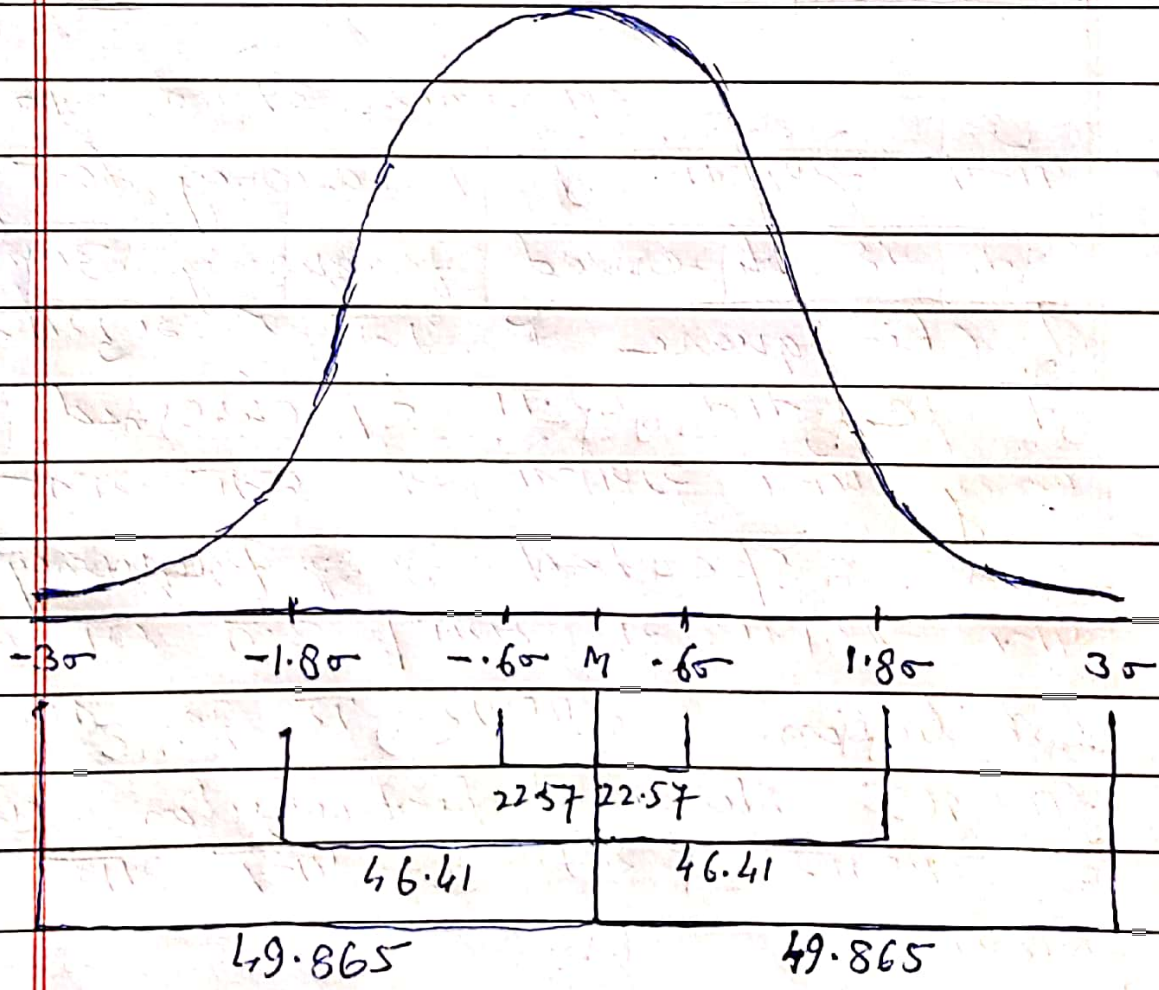 -3σ -1.8σ -.6σ M .6σ 1.8σ 3σ
22.57 22.57
46.41 46.41
49.865 49.865